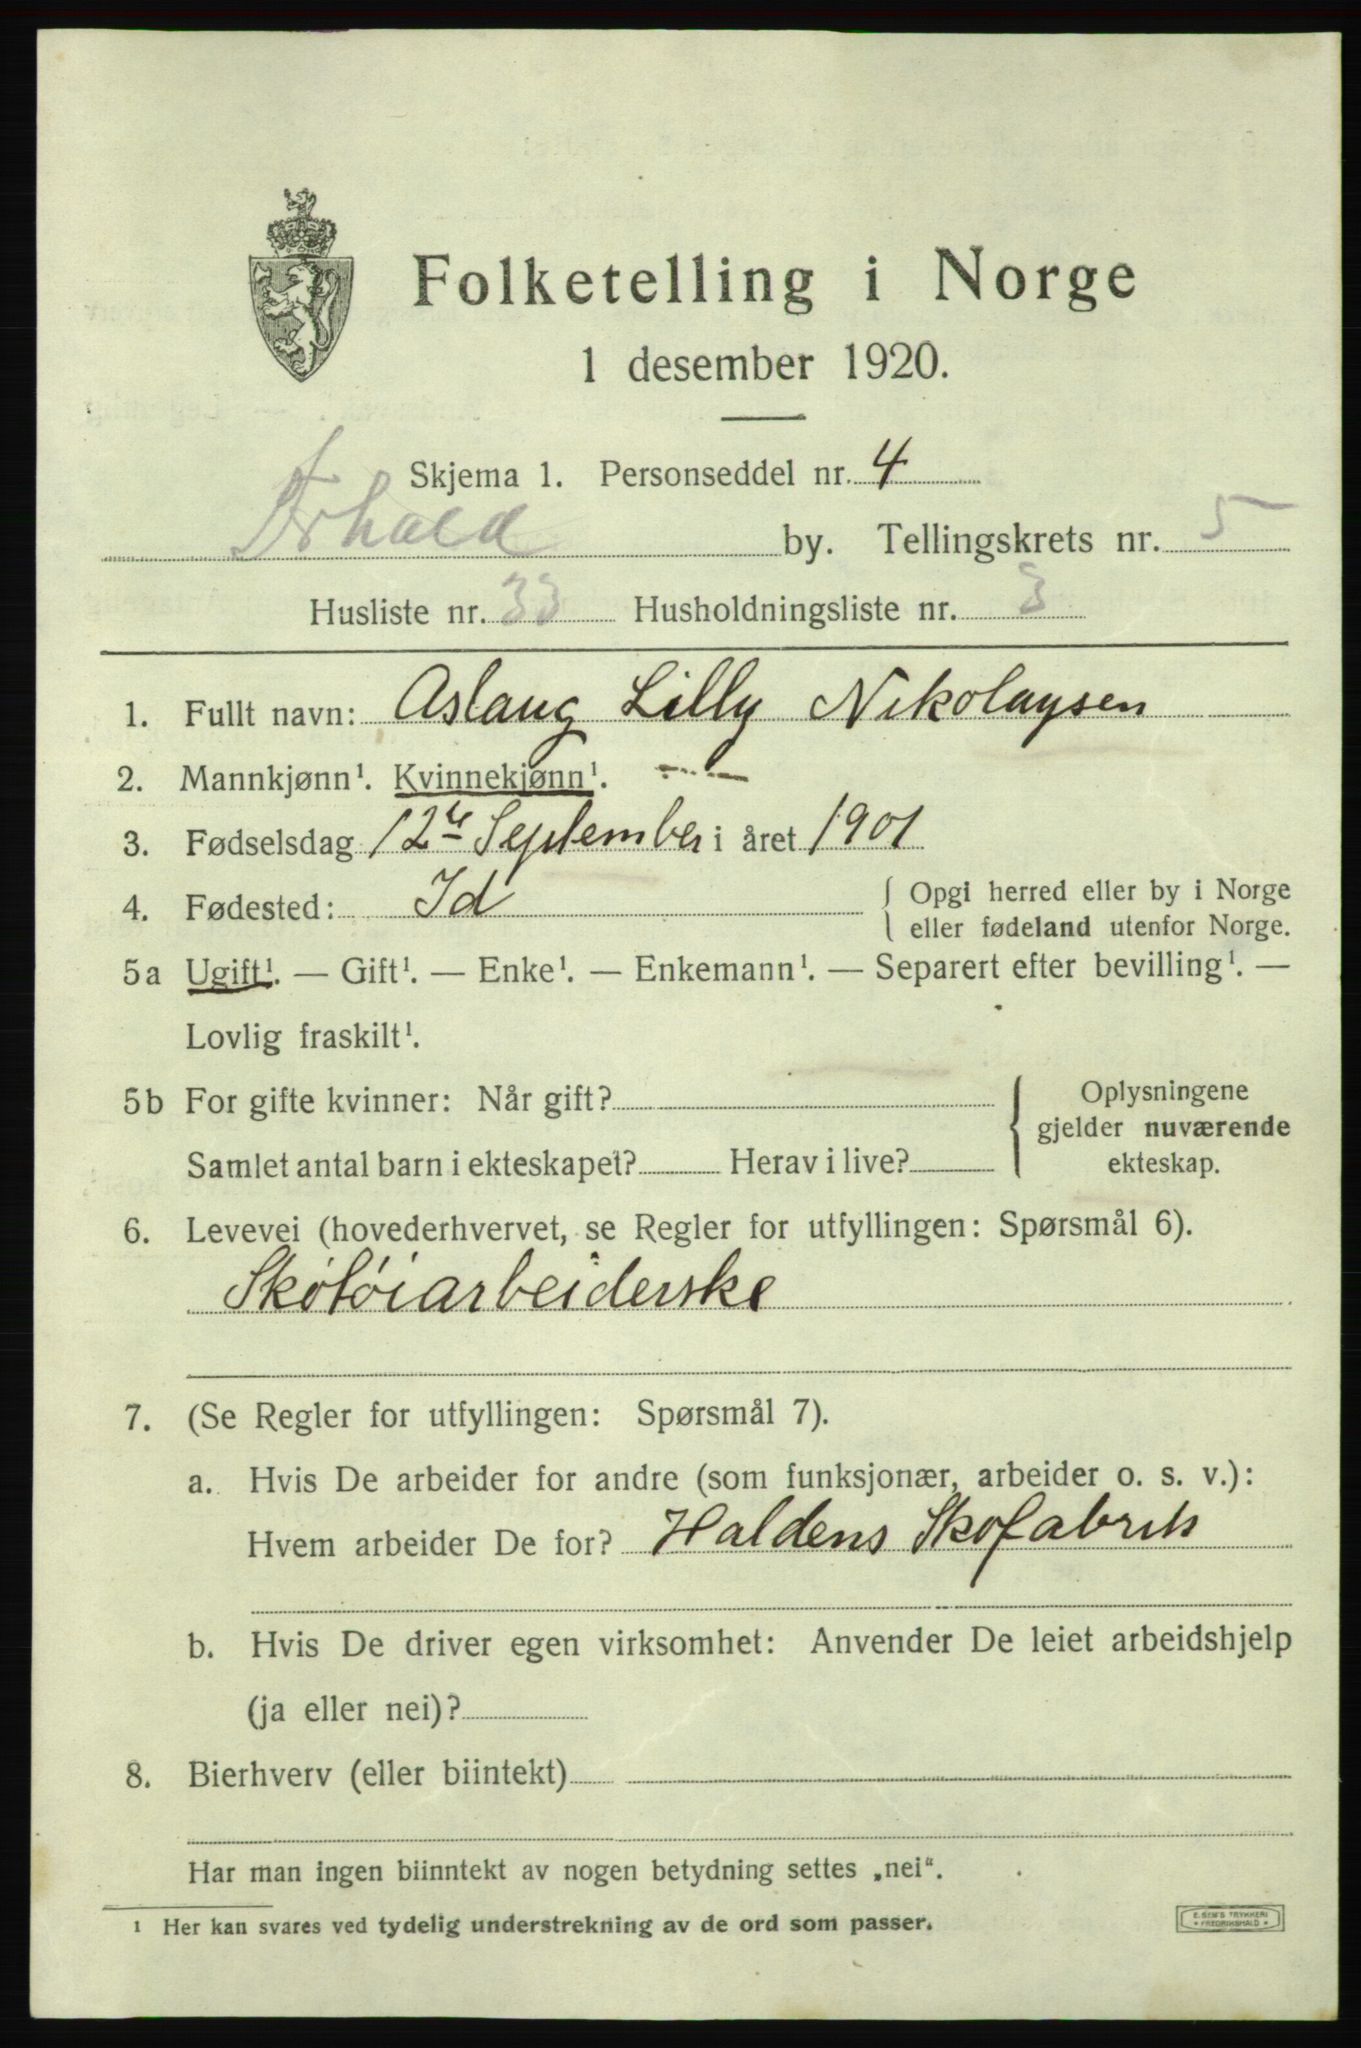 Folketelling i Norge
1 desember 1920.
Skjema 1. Personseddel nr. 4
Frhald by. Tellingskrets nr. 5
Husliste nr. 33 Husholdningsliste nr. 3
1. Fullt navn: Aslaug Lilly Nikolaysen
2. Mannkjønn¹. Kvinnekjønn¹.
3. Fødselsdag 12te September i året 1901
4. Fødested: Id { Opgi herred eller by i Norge
eller fødeland utenfor Norge.
5a Ugift¹. — Gift¹. — Enke¹. — Enkemann¹. — Separert efter bevilling¹. —
Lovlig fraskilt¹.
5b For gifte kvinner: Når gift? { Oplysningene
gjelder nuværende
Samlet antal barn i ekteskapet? Herav i live? ekteskap.
6. Levevei (hovederhvervet, se Regler for utfyllingen: Spørsmål 6).
Skótóiarbeiderske
7. (Se Regler for utfyllingen: Spørsmål 7).
a. Hvis De arbeider for andre (som funksjonær, arbeider o. s. v.):
Hvem arbeider De for? Haldens Skofabrik
b. Hvis De driver egen virksomhet: Anvender De leiet arbeidshjelp
(ja eller nei)?
8. Bierhverv (eller biintekt)
Har man ingen biinntekt av nogen betydning settes „nei“.
¹ Her kan svares ved tydelig understrekning av de ord som passer.
E. SEM'S TRYKKERI
* FREDRIKSHALD *